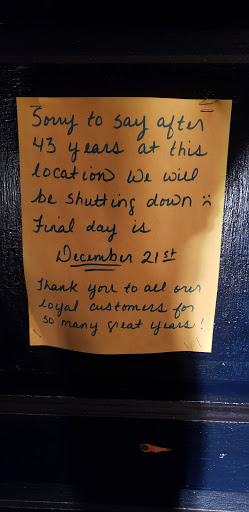 Sorry to say after
43 years at this
location We will
be shutting down :(
Final day is
December 21st
Thank you to all our
loyal customers for
so many great years!